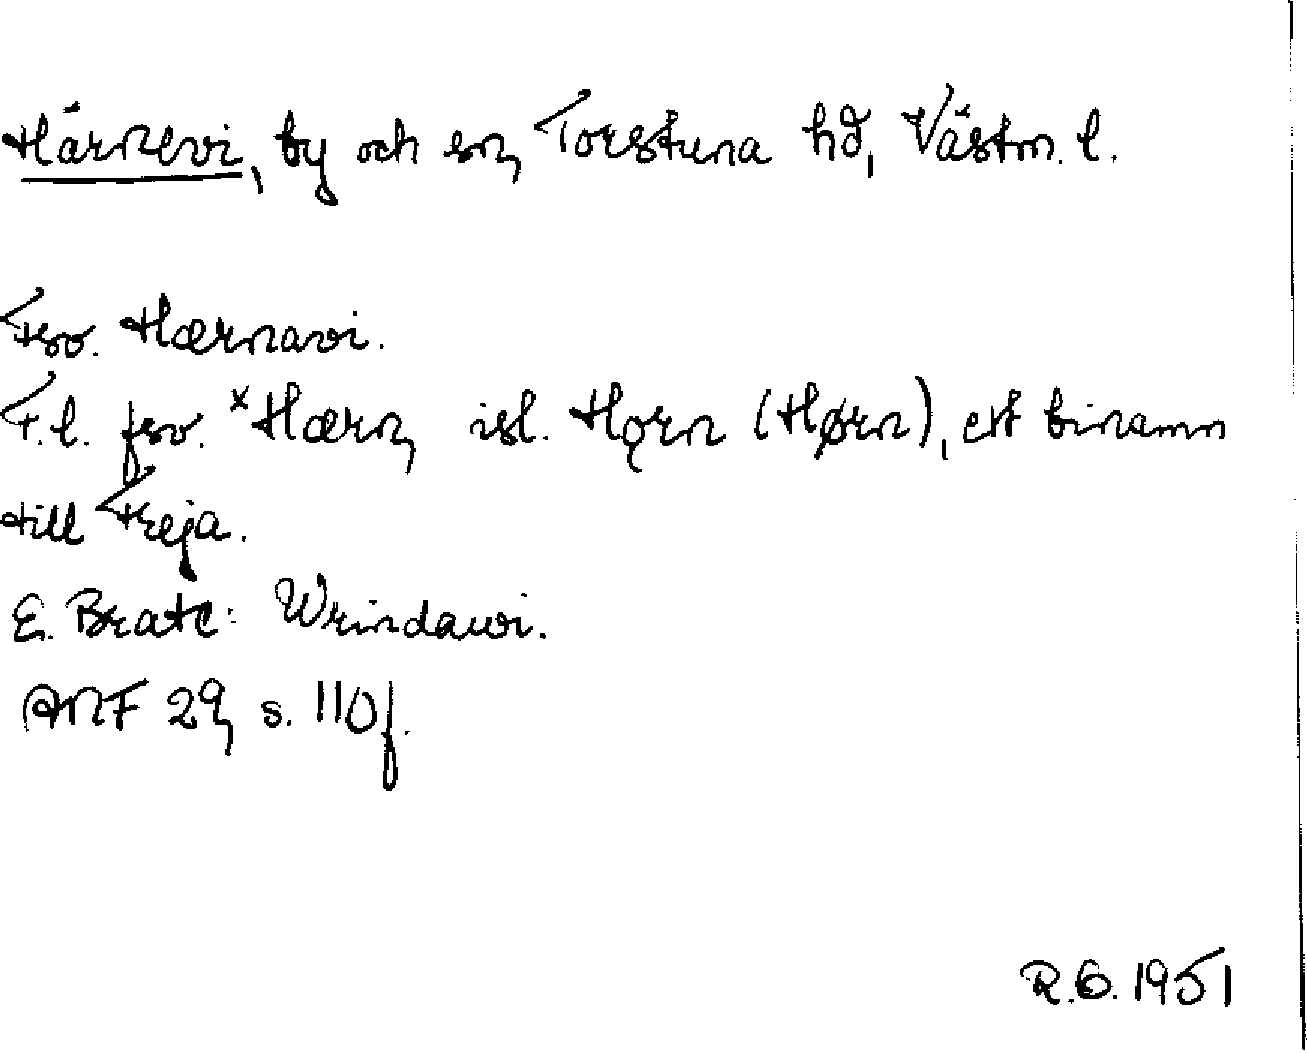 Härnevi, by och sn, Torstuna hd, Västm. l.
Fsv. Hærnavi.
F.l. fsv. *Hærn, isl. Hǫrn (Hørn), ett binamn
till Freja.
E. Brate: Wrindawi.
ANF 29, s. 110 f.
R.O. 1951